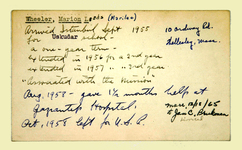 Wheeler, Marion Leeds (Marilee)
10 Ordway Rd.
Wellesley, Mass.
Arrived Istanbul Sept 1955
for Uskudar school
a one-year term -
extended in 1956 for a 2nd year
extended in 1957 " " 2nd year
"Associated with the Mission"
Aug. 1958 - gave 1½ months help at
Gaziantep Hospital.
Oct, 1958 left for U.S.A.
marr. 12/18/65
to Jan C.